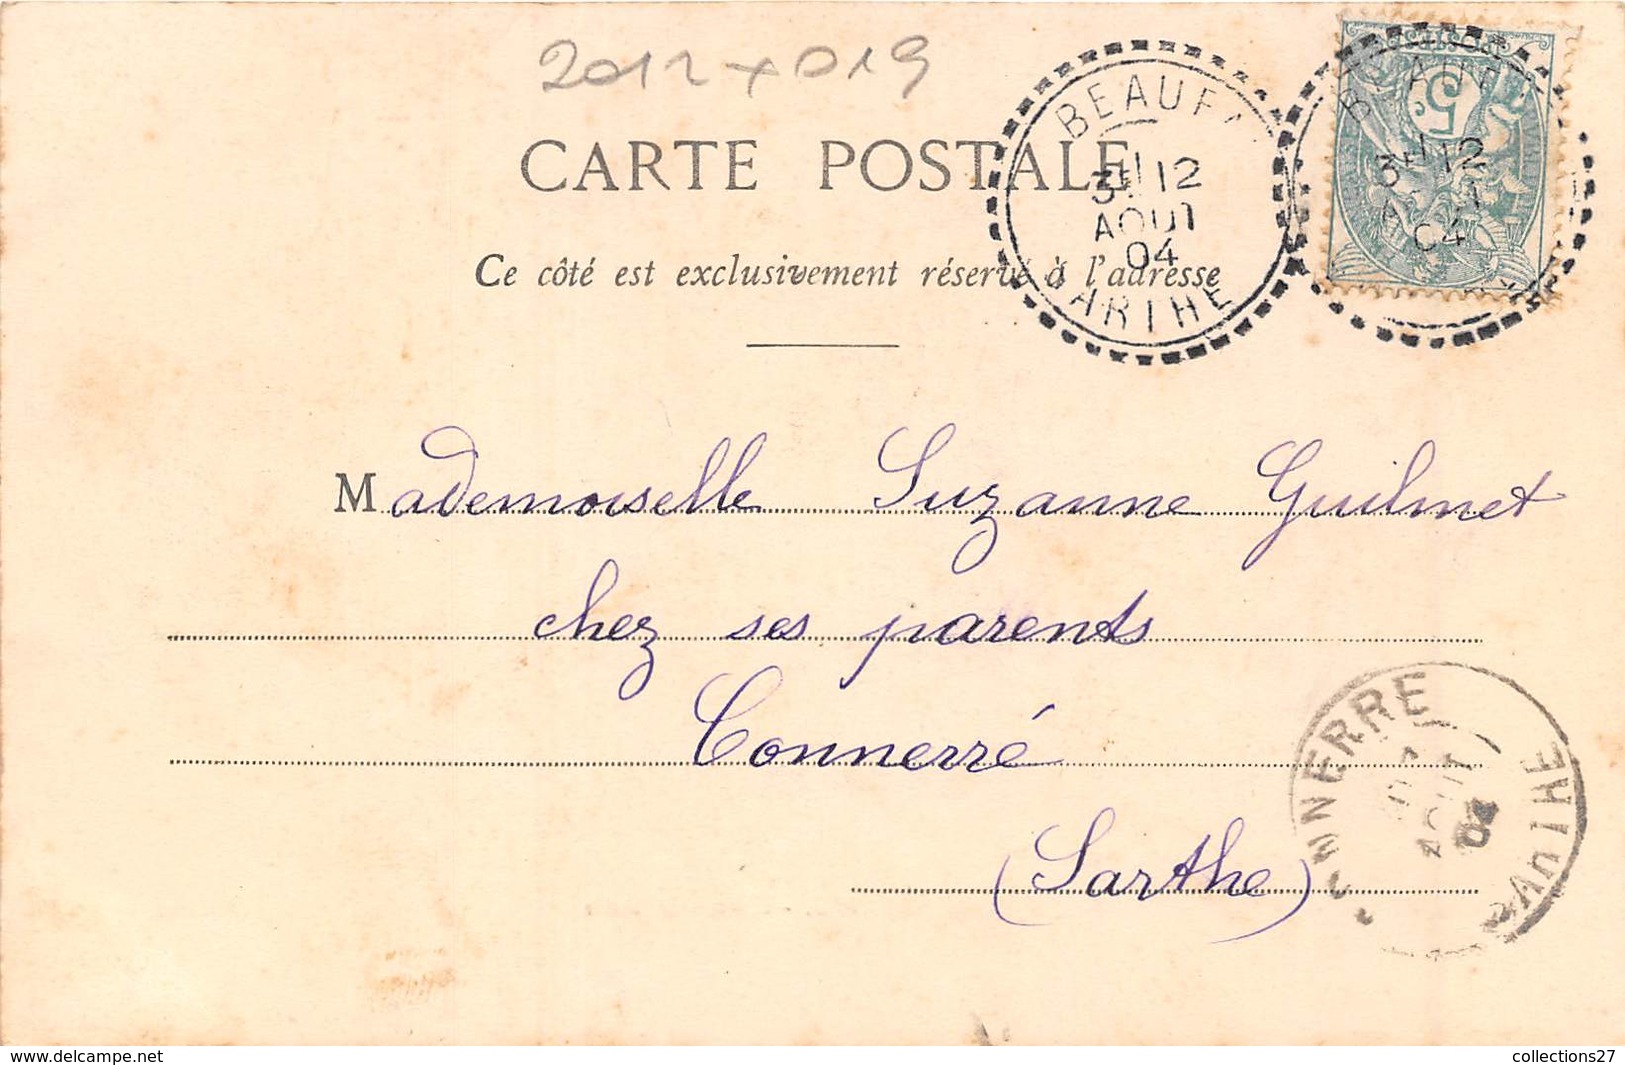 2012 x 019
CARTE POSTALE
Ce côté est exclusivement réservé à l'adresse
BEAUFA
3E 12
AOUT
04
SARTHE
5
BEAUF
3E 12
04
Mademoiselle Suzanne Guilmet
chez ses parents
Connerré
(Sarthe)
NNERRE
AOUT
04
SARTHE
www.delcampe.net
collections27